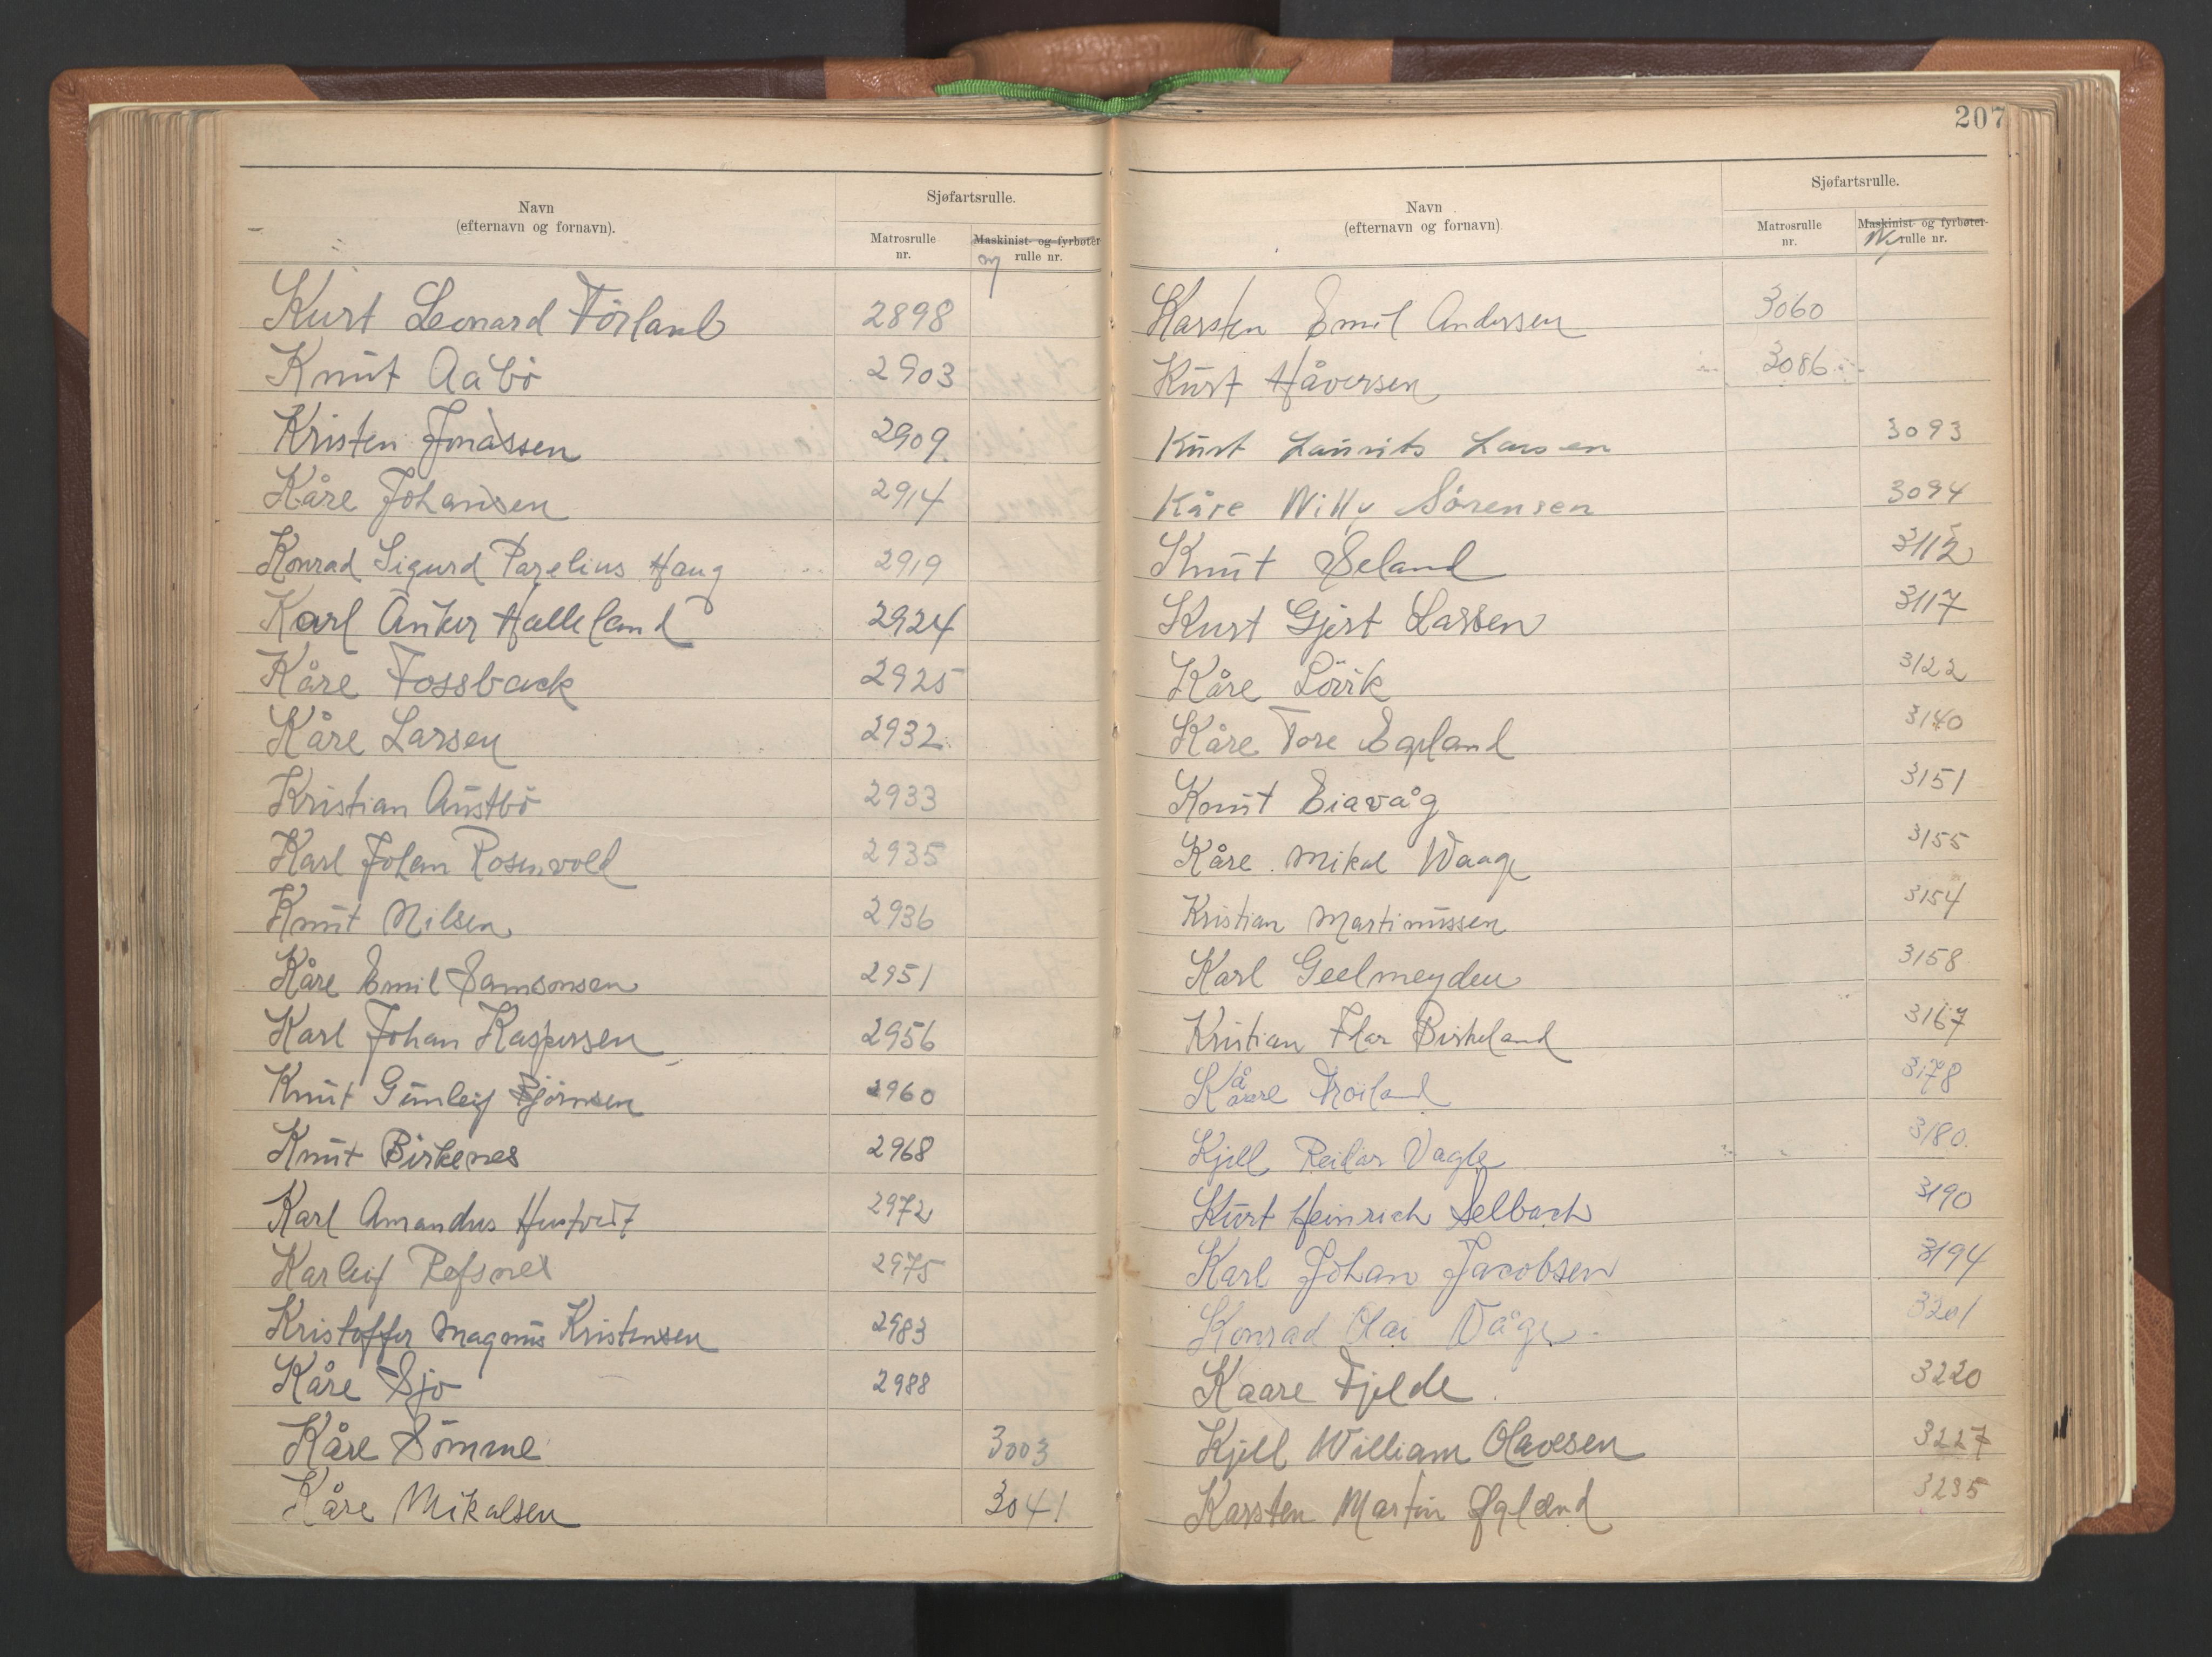 Navn
(efternavn og fornavn).
Sjøfartsrulle.
Matrosrulle
nr.
Maskinist- og fyrbøter
rulle nr.
Kurt Leonard Törland 2898
Knut Aabö 2903
Kristen Jonassen 2909.
Kåre Johansen 2914
Konrad Sigurd Parelius Haug 2919
Karl Anker Halleland 2924
Kåre Fossback 2925
Kåre Larsen 2932
Kristian Austbö 2933
Karl Johan Rosenvold 2935
Knut Nilsen 2936
Kåre Emil Samsonsen 2951
Karl Johan Kaspersen 2956
Knut Gunleif Bjørnsen 2960
Knut Birkenes 2968
Karl Amandus Hustveit 2972
Karleif Refsnes 2975
Kristoffer Magnus Kristensen 2983
Kåre Sjo 2988
Kåre Sömme 3003
Kåre Mikalsen 3041
207
Navn
(efternavn og fornavn).
Sjøfartsrulle.
Matrosrulle
nr.
Maskinist- og fyrbøter-
Ny rulle nr.
Karsten Emil Andersen 3060
Kurt Håversen 3086
Kurt Laurits Larsen 3093
Kåre Willy Sörensen 3094
Knut Seland 3112
Kurt Gjert Larsen 3117
Kåre Lövik 3122
Kåre Tore Egeland 3140
Knut Eiavåg 3151
Kåre Mikal Waage 3155
Kristian Martinussen 3154
Karl Geelmeyden 3158
Kristian Birkeland 3167
Kåre Tröiland 3178
Kjell Reidar Vagle 3180.
Kurt Heinrich Selbach 3190
Karl Johan Jacobsen 3194
Konrad Olai Våge. 3201
Kaare Fjelde. 3220
Kjell William Olavesen 3227
Karsten Martin Øgland 3235